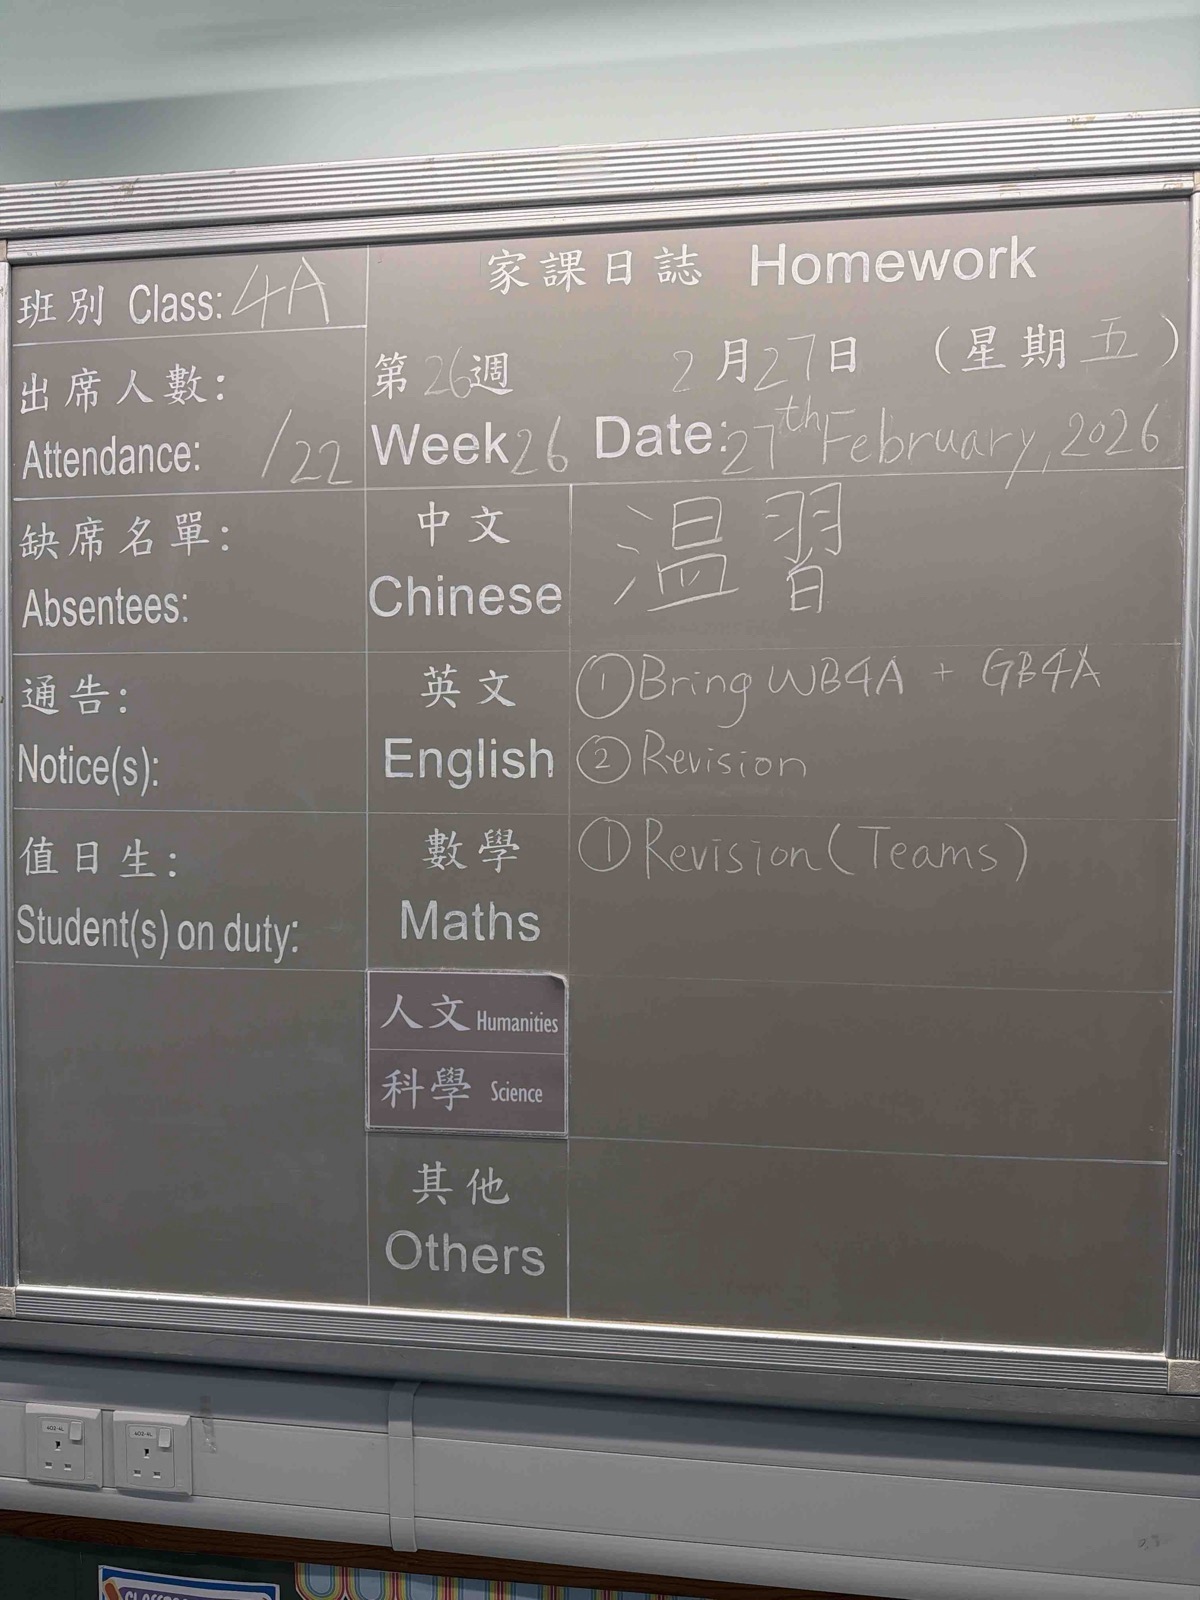 班別 Class: 4A
出席人數:
Attendance: /22
缺席名單:
Absentees:
通告:
Notice(s):
值日生:
Student(s) on duty:
家課日誌 Homework
第26週 2月27日 (星期五)
Week 26 Date: 27th February, 2026
中文
Chinese
温習
英文
English
① Bring WB4A + GB4A
② Revision
數學
Maths
① Revision (Teams)
人文 Humanities
科學 Science
其他
Others